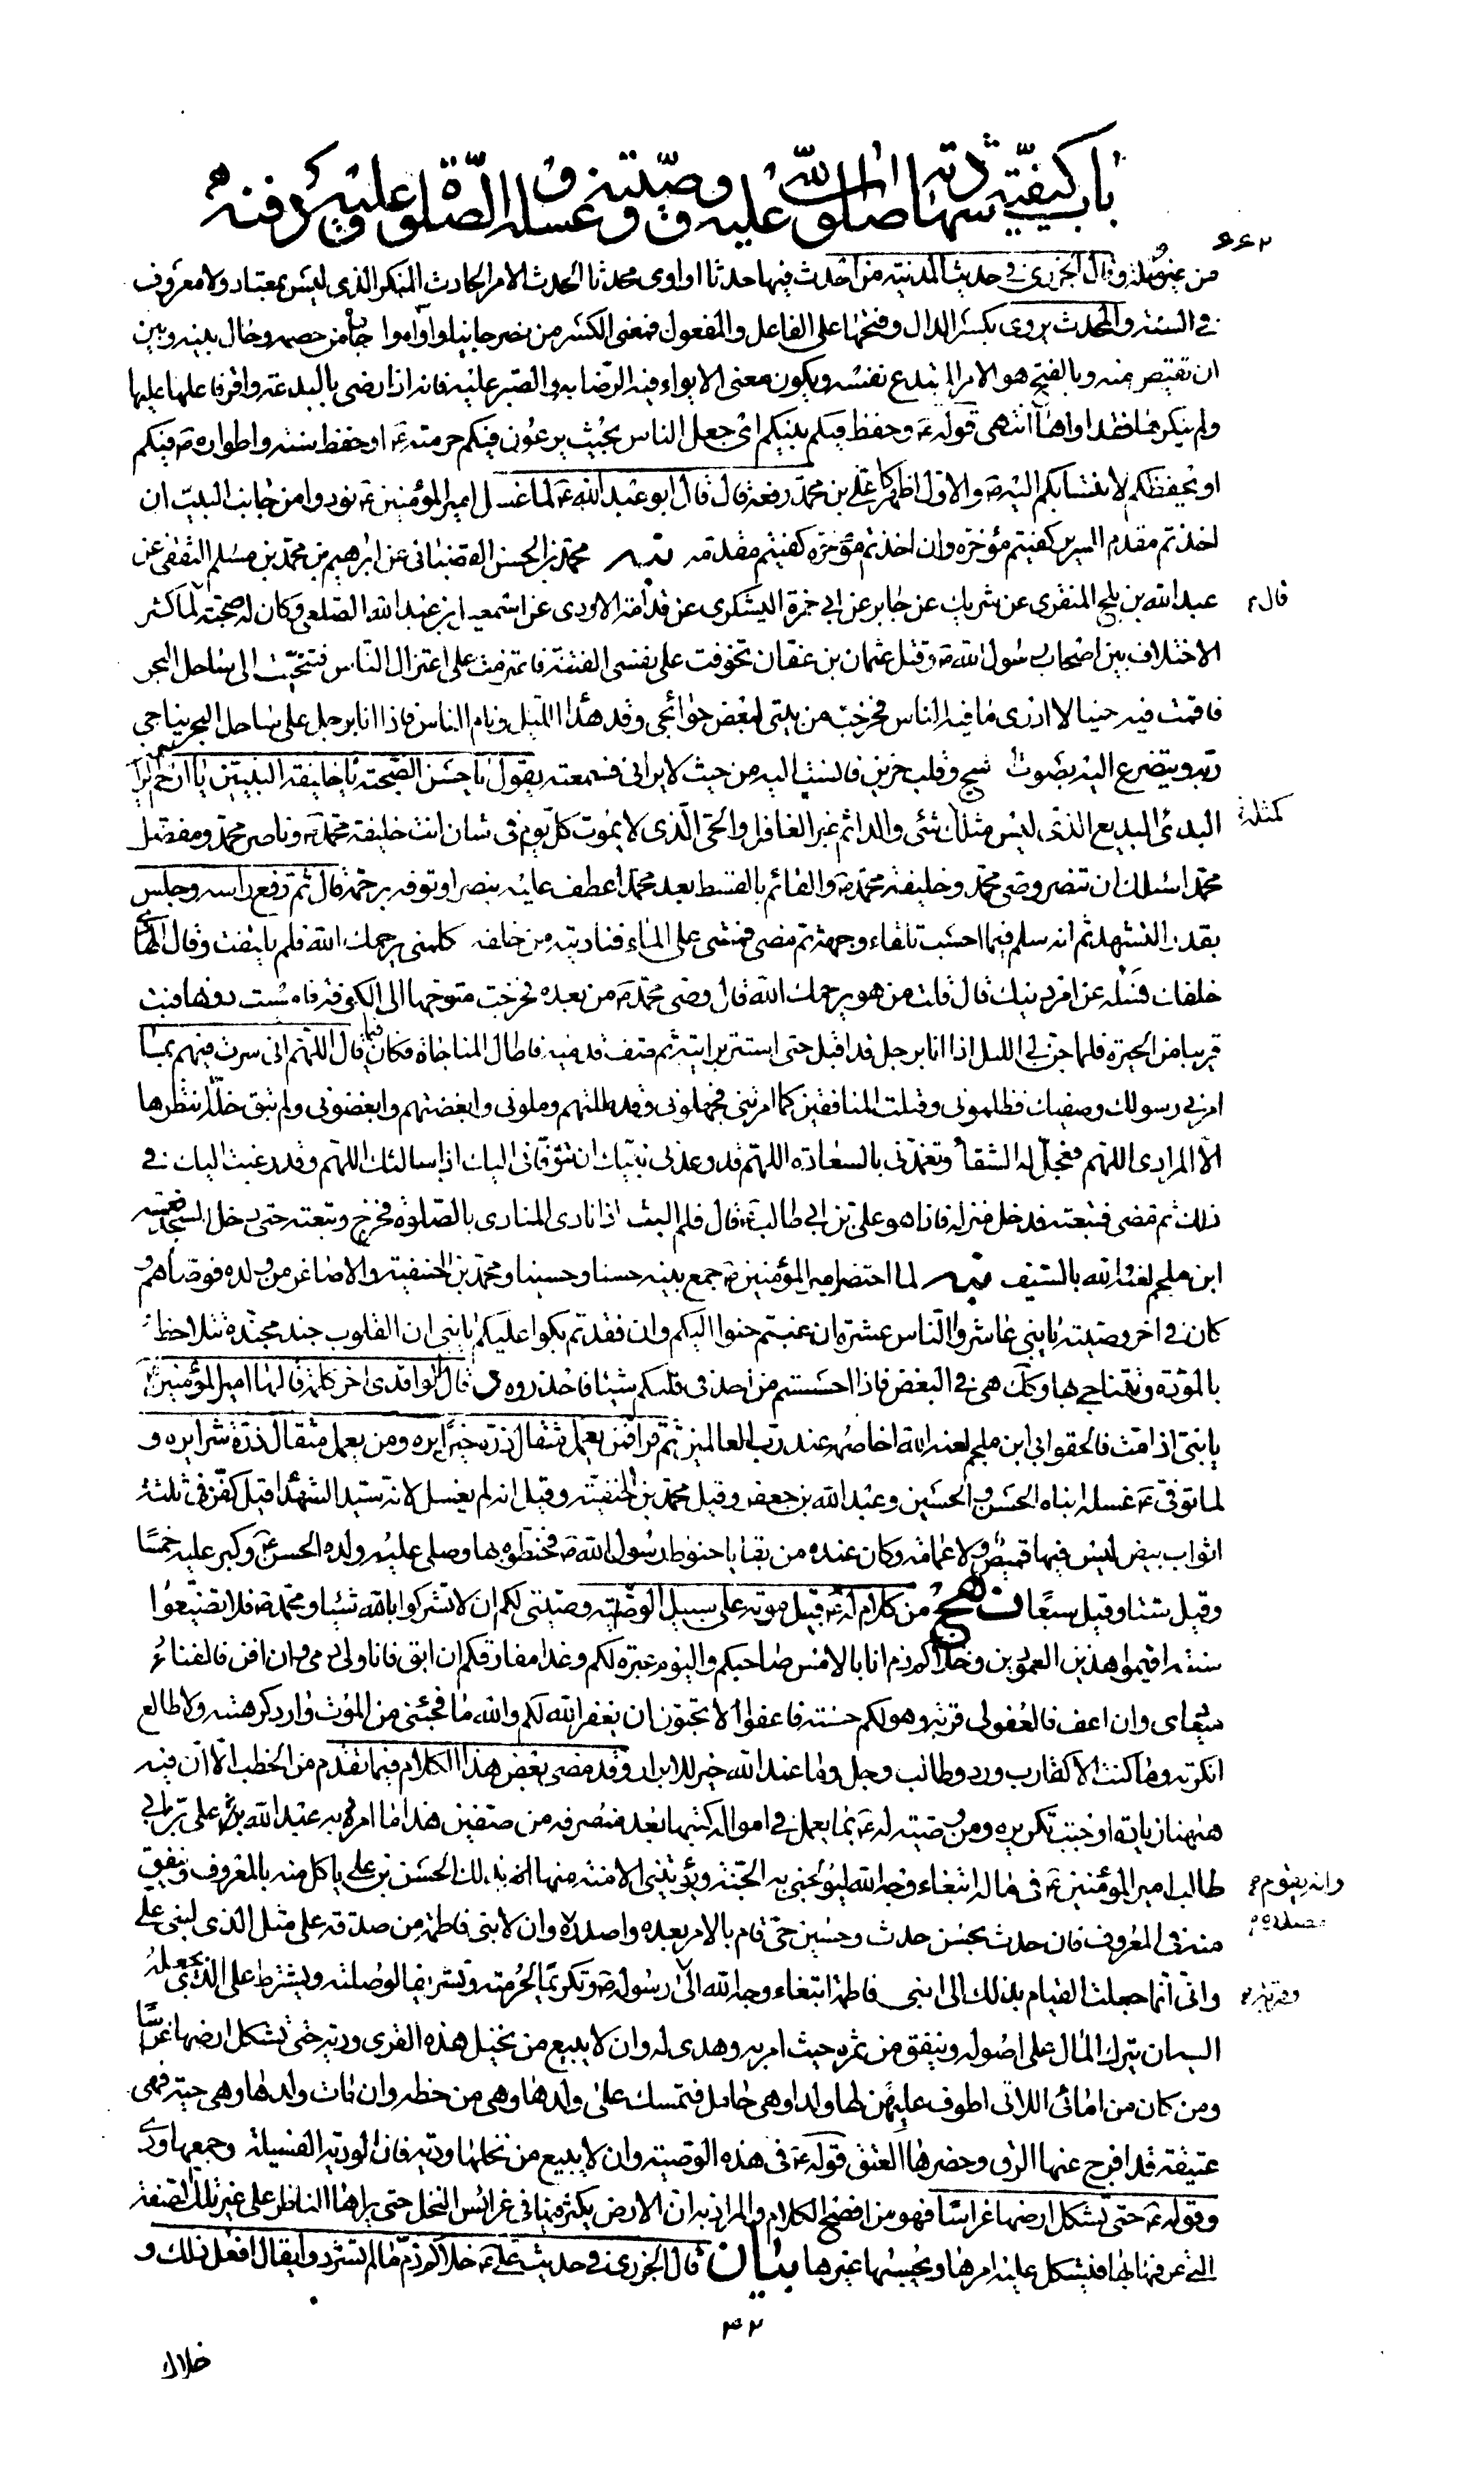 باب كيفية شهادته صلوات الله عليه ووصيته وغسله والصلوة عليه ودفنه
٦٦٢
من عنوة وقال الجزري في حديث المدينة من احدث فيها حدثا او اوى محدثا الحدث الامر الحادث المنكر الذي ليس بمعتاد ولا معروف
في السنة والمحدث يروى بكسر الدال وفتحها على الفاعل والمفعول فمعنى الكسر من نصر جانيا واواه واجاره من خصمه وحال بينه وبين
ان يقتص منه وبالفتح هو الامر المبتدع نفسه ويكون معنى الايواء فيه الرضا به والصبر عليه فانه اذا رضي بالبدعة واقر فاعلها عليها
ولم ينكرها فقد اواها انتهى قوله ع وحفظ فيكم نبيكم اي جعل الناس بحيث يرعون فيكم حرمته ع او حفظ سننه واطواره ص فيكم
او يحفظكم لانتسابكم اليه ص والاول اظهر كا علي بن محمد رفعه قال قال ابو عبد الله ع لما غسل امير المؤمنين ع نودوا من جانب البيت ان
اخذتم مقدم السرير كفيتم مؤخره وان اخذتم مؤخره كفيتم مقدمه محمد بن الحسن القضباني عن ابراهيم بن محمد بن مسلم الثقفي عن
قال
عبد الله بن بلج المنقري عن شريك عن جابر عن ابي حمزة اليشكري عن قدامة الاودي عن اسمعيل بن عبد الله الصلعي وكان له صحبة لما كثر
الاختلاف بين اصحاب رسول الله ص وقتل عثمان بن عفان تخوفت على نفسي الفتنة فاعتزمت على اعتزال الناس فتنحيت الى ساحل البحر
فاقمت فيه حينا لا ادري ما فيه الناس فخرجت من بيتي لبعض حوائجي وقد هدا الليل ونام الناس فاذا انا برجل على ساحل البحر يناجي
ربه ويتضرع اليه بصوت شج وقلب حزين فانست اليه من حيث لا يراني فسمعته يقول يا حسن الصحبة يا خليفة النبيين يا ارحم الراحمين
كمثله
البدئ البديع الذي ليس مثلك شئ والدائم غير الغافل والحي الذي لا يموت كل يوم في شان انت خليفة محمد ص وناصر محمد ومفضل
محمد اسئلك ان تنصر وصي محمد وخليفة محمد ص والقائم بالقسط بعد محمد اعطف عليه بنصر او توفه برحمة قال ثم رفع راسه وجلس
بقدر التشهد ثم انه سلم فيما احسب تلقاء وجهه ثم مضى فمشى على الماء فناديته من خلفه كلمني يرحمك الله فلم يلتفت وقال الهادي
خلفك فسله عن امر دينك قال قلت من هو يرحمك الله قال وصي محمد ص من بعده فخرجت متوجها الى الكوفة فامسيت دونها فبت
قريبا من الحيرة فلما جن لي الليل اذا انا برجل قد اقبل حتى استتر برابية ثم صف قدميه فاطال المناجاة فكان فيما قال اللهم اني سرت فيهم بما
امرني رسولك وصفيك فظلموني وقتلت المنافقين كما امرتني فجهلوني وقد مللتهم وملوني وابغضتهم وابغضوني ولم تبق خلة انتظرها
الا المرادي اللهم فعجل له الشقا وتغمدني بالسعادة اللهم قد وعدني نبيك ان تتوفاني اليك اذا سالتك اللهم وقد رغبت اليك في
ذلك ثم مضى فتبعته فدخل منزله فاذا هو علي بن ابي طالب ع قال فلم البث اذ نادى المنادي بالصلوة فخرج وتبعته حتى دخل المسجد فعممه
ابن ملجم لعنه الله بالسيف لما احتضر امير المؤمنين ع جمع بنيه حسنا وحسينا ومحمد بن الحنفية والاصاغر من ولده فوصاهم و
كان في اخر وصيته يا بني عاشروا الناس عشرة ان غبتم حنوا اليكم وان فقدتم بكوا عليكم يا بني ان القلوب جند مجندة تتلاحظ
بالمودة وتتناجى بها وكك هي في البغض فاذا احسستم من احد في قلبكم شيئا فاحذروه قال الواقدي اخر كلمة قالها امير المؤمنين ع
يا بني اذا مت فالحقوا بي ابن ملجم لعنه الله اخاصمه عند رب العالمين ثم قرا فمن يعمل مثقال ذرة خيرا يره ومن يعمل مثقال ذرة شرا يره و
لما توفي ع غسله ابناه الحسن والحسين وعبد الله بن جعفر وقيل محمد بن الحنفية وقيل انه لم يغسل لانه سيد الشهداء قيل كفن في ثلثة
اثواب بيض ليس فيها قميص ولا عمامة وكان عنده من بقايا حنوط رسول الله ص فحنطوه بها وصلى عليه ولده الحسن ع وكبر عليه خمسا
وقيل ستا وقيل سبعا نهج من كلام له ع قبيل موته على سبيل الوصية وصيتي لكم ان لا تشركوا بالله شيئا ومحمد ص فلا تضيعوا
سنته اقيموا هذين العمودين وخلاكم ذم انا بالامس صاحبكم واليوم عبرة لكم وغدا مفارقكم ان ابق فانا ولي دمي وان افن فالفناء
ميعادي وان اعف فالعفو لي قربة وهو لكم حسنة فاعفوا الا تحبون ان يغفر الله لكم والله ما فجئني من الموت وارد كرهته ولا طالع
انكرته وما كنت الا كقارب ورد وطالب وجد وما عند الله خير للابرار وقد مضى بعض هذا الكلام فيما تقدم من الخطب الا ان فيه
ههنا زيادة اوجبت تكريره ومن وصيته له ع بما يعمل في امواله كتبها بعد منصرفه من صفين هذا ما امر به عبد الله علي بن ابي
طالب امير المؤمنين ع في ماله ابتغاء وجه الله ليولجني به الجنة ويؤتيني الامنة منها انه بذلك الحسن بن علي ياكل منه بالمعروف وينفق
وانه يقوم
منه في المعروف فان حدث بحسن حدث وحسين حي قام بالامر بعده واصدره وان لابني فاطمة من صدقة علي مثل الذي لبني علي
مصدره
واني انما جعلت القيام بذلك الى ابني فاطمة ابتغاء وجه الله الى رسوله ص وتكريما لحرمته وتشريفا لوصلته ويشترط على الذي يجعله
وقربة
اليه ان يترك المال على اصوله وينفق من ثمره حيث امر به وهدي له وان لا يبيع من نخيل هذه القرى ودية حتى تشكل ارضها غراسا
ومن كان من امائي اللاتي اطوف عليهن لها ولد او هي حامل فتمسك على ولدها وهي من حظه وان مات ولدها وهي حية فهي
عتيقة قد افرج عنها الرق وحضرها العتق قوله ع في هذه الوصية وان لا يبيع من نخلها ودية فان الودية الفسيلة وجمعها ودي
وقوله ع حتى تشكل ارضها غراسا فهو من افصح الكلام والمراد به ان الارض يكثر فيها غرائس النخل حتى يراها الناظر على غير تلك الصفة
التي عرفها بها فيشكل عليه امرها ويحسبها غيرها بيان قال الجزري في حديث علي ع خلاكم ذم ما لم تشردوا يقال افعل ذلك و
٤٢
خلاك